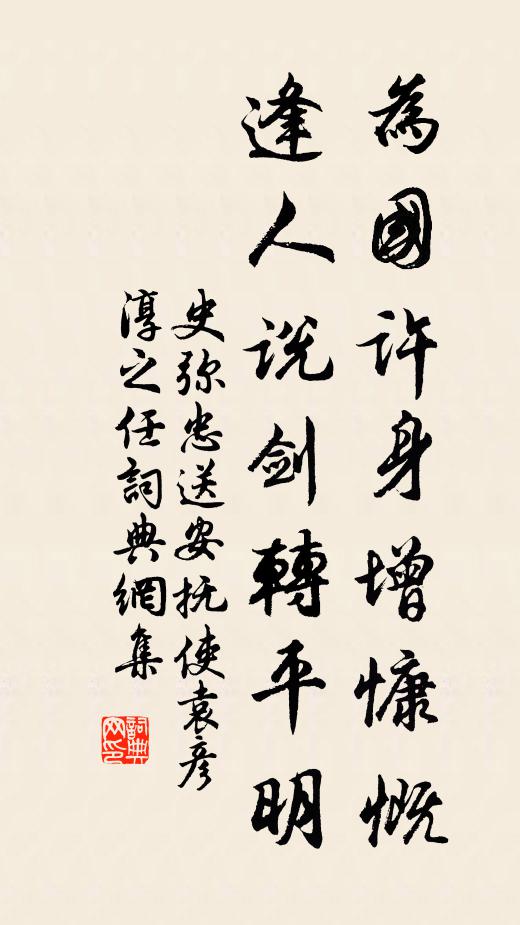 為國許身增慷慨
逢人説剑轉平明
史弥忠送安抚使袁彦
淳之任詞典網集
詞典
网印